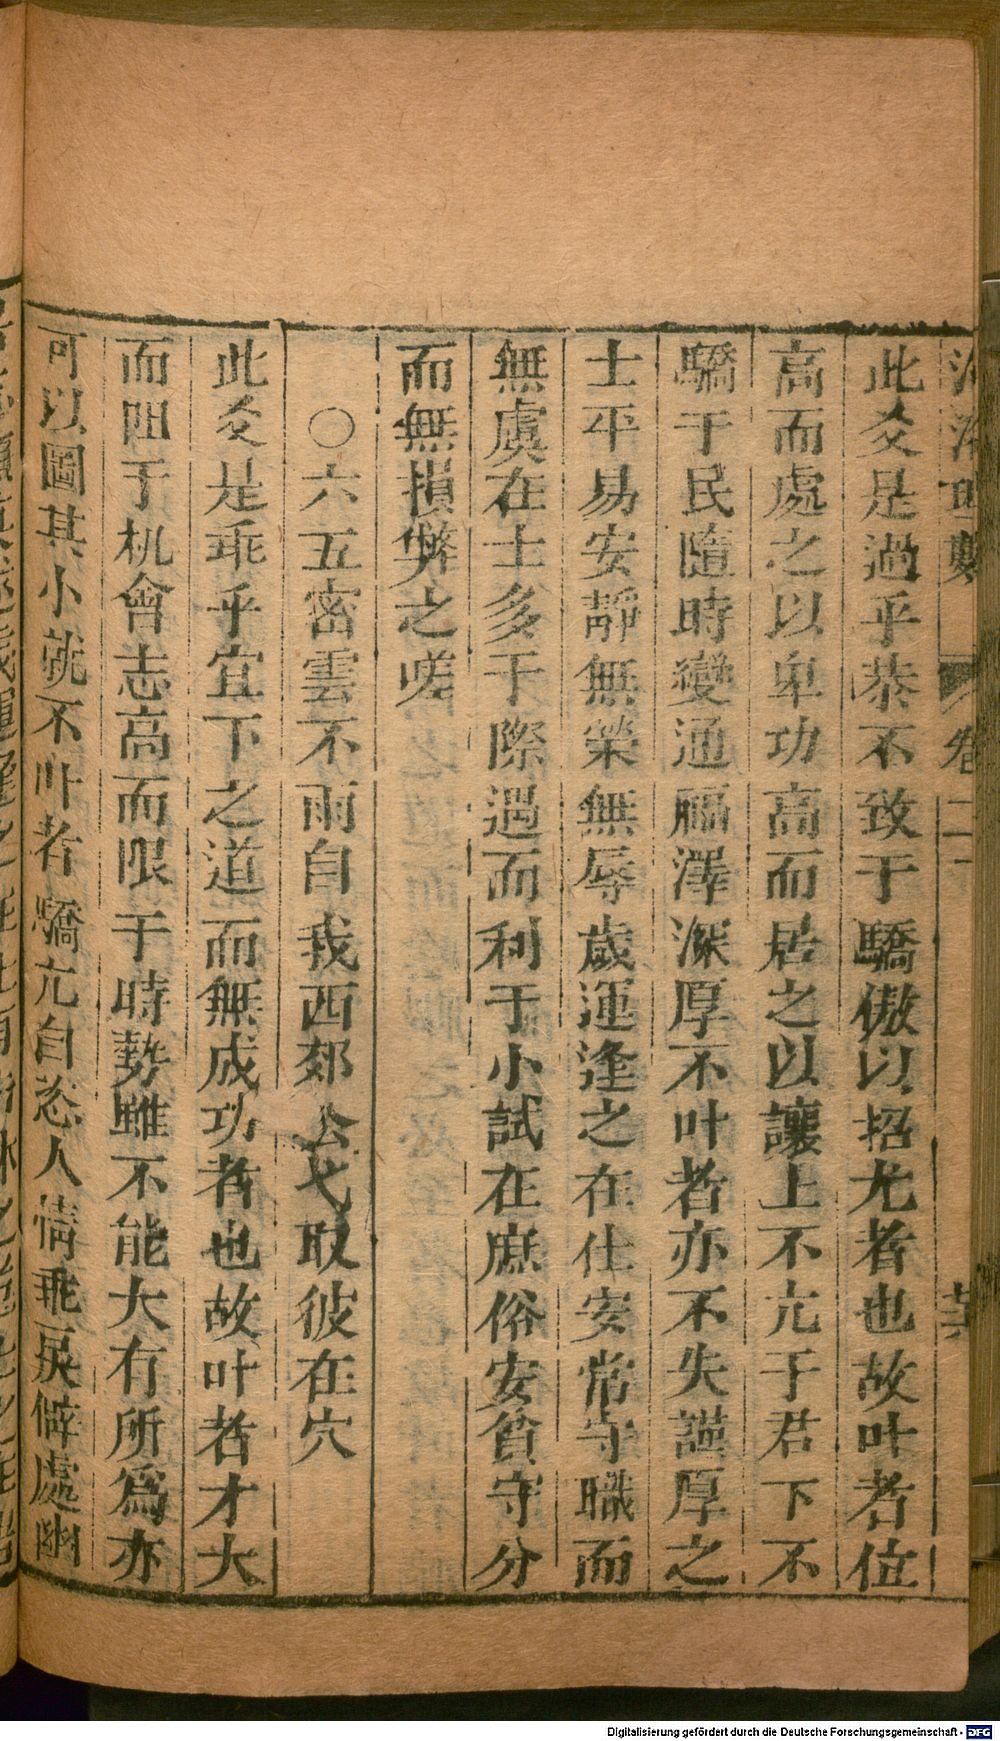 卷二
此爻是過乎恭不致于驕傲以招尤者也故叶者位
高而處之以卑功高而居之以讓上不亢于君下不
驕于民隨時變通福澤深厚不叶者亦不失謹厚之
士平易安靜無榮無辱歲運逢之在仕安常守職而
無虞在士多于際遇而利于小試在庶俗安貧守分
而無損弊之嗟
○六五密雲不雨自我西郊公弋取彼在穴
此爻是乖乎宜下之道而無成功者也故叶者才大
而阻于机會志高而限于時勢雖不能大有所爲亦
可以圖其小就不叶者驕亢自恣人情乖戾僻處幽
Digitalisierung gefördert durch die Deutsche Forschungsgemeinschaft - DFG